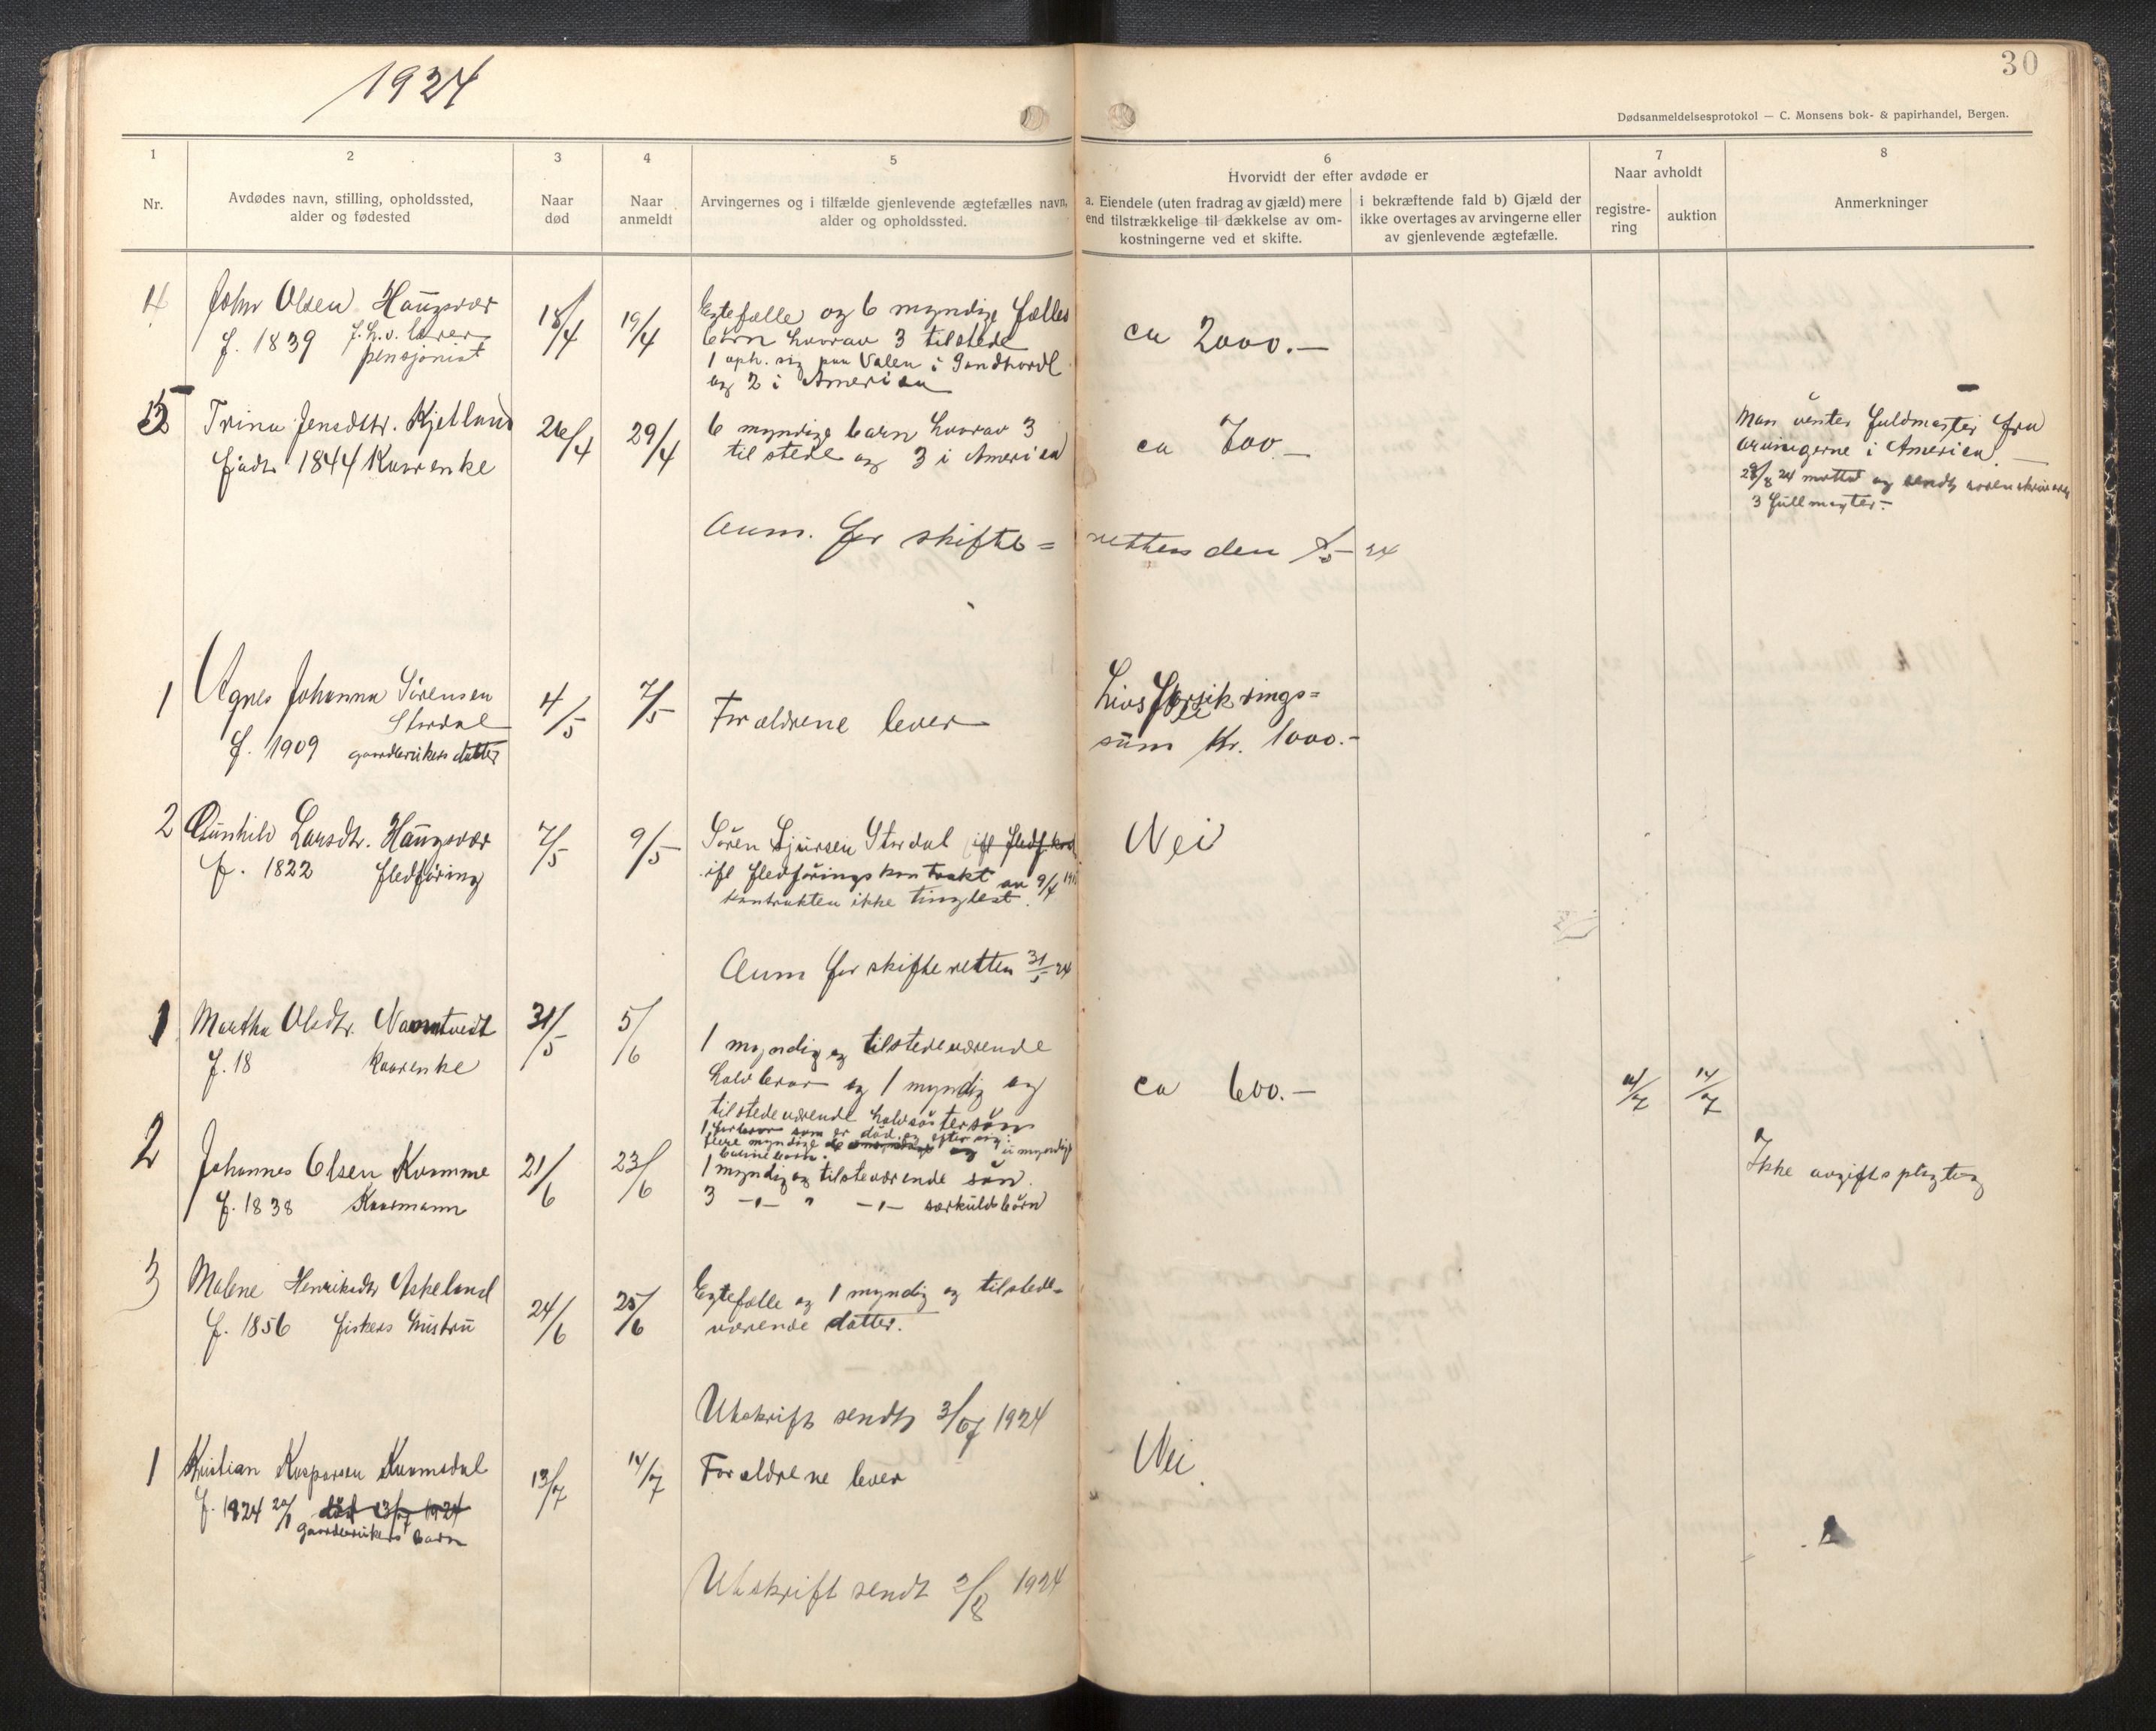 1924
30
Dødsanmeldelsesprotokol — C. Monsens bok- & papirhandel, Bergen.
1
Nr.
2
Avdødes navn, stilling, opholdssted,
alder og fødested
3
Naar
død
4
Naar
anmeldt
5
Arvingernes og i tilfælde gjenlevende ægtefælles navn,
alder og opholdssted.
6
Hvorvidt der efter avdøde er
a. Eiendele (uten fradrag av gjæld) mere
end tilstrækkelige til dækkelse av om-
kostningerne ved et skifte.
i bekræftende fald b) Gjæld der
ikke overtages av arvingerne eller
av gjenlevende ægtefælle.
7
Naar avholdt
registre-
ring
auktion
8
Anmerkninger
4
John Olsen Haugsvær
f. 1839 f.h.v. lærer
pensjonist
18/4
19/4
Egtefælle og 6 myndige fælles
børn hvorav 3 tilstede
1 oph. sig paa Valen i Søndhordl.
og 2 i America
ca 2000.—
5
Trina Jensdtr. Kjetland
født 1844 Kaarenke
26/4
29/4
6 myndige barn hvorav 3
til stede og 3 i America
ca 700.—
Man venter fuldmagter fra
arvingerne i America. —
29/8 24 mottat og sendt sorenskriveren
3 fullmagter.—
Anm. for skifte=
retten den 1/5 – 24
1
Agnes Johanna Sørensen
Stordal
f. 1909 gaardbrukers datter
4/5
7/5
Forældrene lever
Livsforsikrings=
sum Kr. 1000.-
2
Gunhild Larsdtr. Haugsvær
f. 1822 fledføring
7/5
9/5
Søren Sjursen Stordal
ifl fledføringskontrakt av 9/4
kontrakten ikke tinglest.
Nei
Anm for skifteretten 31/5 24
1
Martha Olsdtr. Namtvedt
f. 18 Kaarenke
31/5
5/6
1 myndig og tilstedeværende
halvbror og 1 myndig og
tilstedeværende halvsøstersøn
ca 600.—
14/7
14/7
2
Johannes Olsen Kvamme
f. 1838 Kaarmann
21/6
23/6
1 myndig og tilsteværende søn.
3 –"– " –"– særkuldsbørn
Ikke avgiftspligtig
3
Malene Henriksdtr Askeland
f. 1856 fiskers hustru
24/6
25/6
Egtefælle og 1 myndig og tilstede-
værende datter.
Utskrift sendt 3/7 1924
1
Kristian Kasparsen Kvamsdal
f. 1924 20/1 død 13/7 1924
gaardbrukers barn
13/7
14/7
Forældrene lever
Nei
Utskrift sendt 2/8 1924